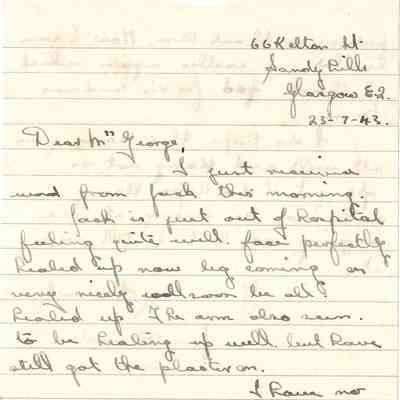 66 Kelton St.
Sandy Hills
Glasgow E.2.
23-7-43.
Dear Mrs George,
I just received
word from Jack this morning.
Jack is just out of hospital
feeling quite well. face perfectly
healed up now leg coming on
very nicely will soon be all
healed up. The arm also seem.
to be healing up well. but have
still got the plaster on.
I have no